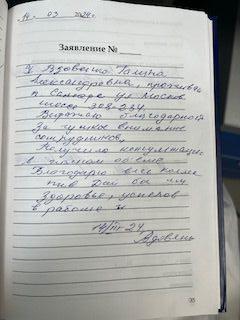 14. 03 2024г.
Заявление №
Я Вдовенко Галина
Александровна, проживаю
г. Самара ул Москов
шоссе 308-234.
Выражаю благодарность
За чуткое внимание
сотрудников,
Получила консультацию
в полном объеме
Благодарю весь коллек
тив Дай бог им
Здоровье, успехов
в работе
14/III-24
35